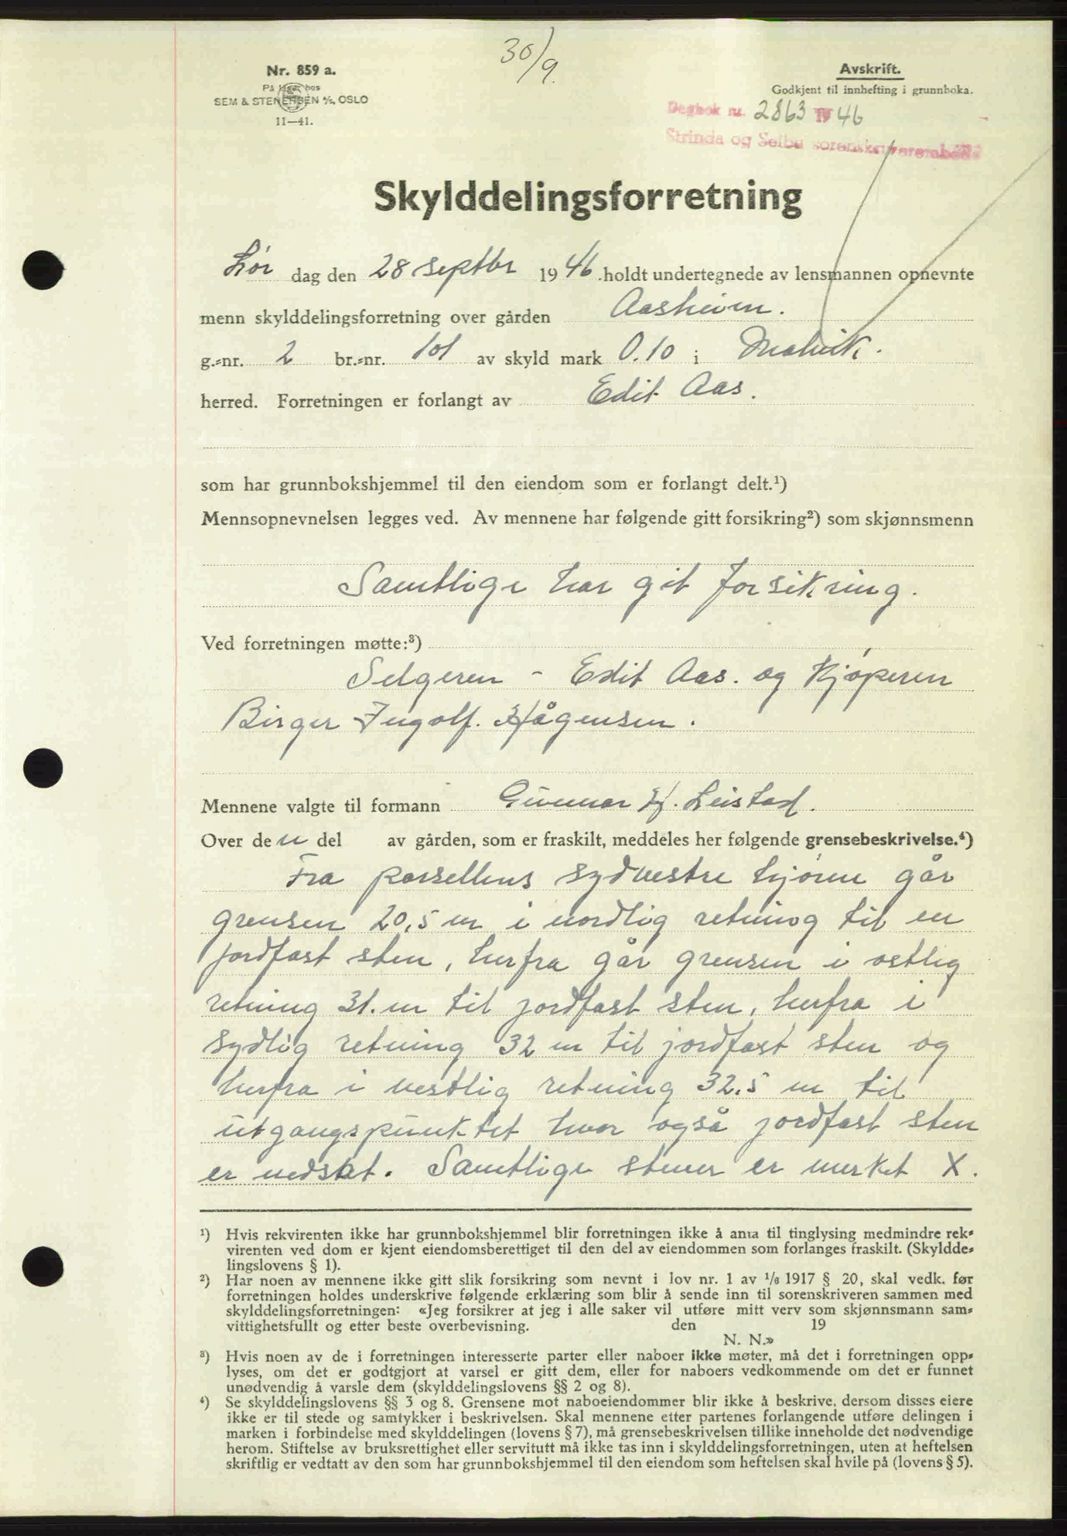 30/9.
Nr. 859 a.
På lager hos
SEM & STENERSEN A/S, OSLO
11—41.
Avskrift.
Godkjent til innhefting i grunnboka.
Dagbok nr. 2863 1946
Strinda og Selbu sorenskriverembede
Skylddelingsforretning
Lør dag den 28 septbr 1946. holdt undertegnede av lensmannen opnevnte
menn skylddelingsforretning over gården Aasheim.
g.-nr. 2 br.-nr. 101 av skyld mark 0.10 i Malvik.
herred. Forretningen er forlangt av Edit Aas.
som har grunnbokshjemmel til den eiendom som er forlangt delt.¹)
Mennsopnevnelsen legges ved. Av mennene har følgende gitt forsikring²) som skjønnsmenn
Samtlige har git forsikring.
Ved forretningen møtte:³)
Selgeren - Edit Aas. og Kjøperen
Birger Ingolf. Hågensen.
Mennene valgte til formann Gunnar H. Leistad.
Over den del av gården, som er fraskilt, meddeles her følgende grensebeskrivelse.⁴)
Fra parsellens sydvestre hjørne går
grensen 20,5 m i nordlig retning til en
jordfast sten, herfra går grensen i østlig
retning 31. m til jordfast sten, herfra i
sydlig retning 32 m til jordfast sten og
herfra i vestlig retning 32,5 m til
utgangspunktet hvor også jordfast sten
er nedsat. Samtlige stener er merket X.
¹) Hvis rekvirenten ikke har grunnbokshjemmel blir forretningen ikke å anta til tinglysing medmindre rek-
virenten ved dom er kjent eiendomsberettiget til den del av eiendommen som forlanges fraskilt. (Skyldde-
lingslovens § 1).
²) Har noen av mennene ikke gitt slik forsikring som nevnt i lov nr. 1 av 1/6 1917 § 20, skal vedk. før
forretningen holdes underskrive følgende erklæring som blir å sende inn til sorenskriveren sammen med
skylddelingsforretningen: «Jeg forsikrer at jeg i alle saker vil utføre mitt verv som skjønnsmann sam-
vittighetsfullt og etter beste overbevisning. den 19
N. N.»
³) Hvis noen av de i forretningen interesserte parter eller naboer ikke møter, må det i forretningen opp-
lyses, om det er godtgjort at varsel er gitt dem, eller for naboers vedkommende om det er funnet
unødvendig å varsle dem (skylddelingslovens §§ 2 og 8).
⁴) Se skylddelingslovens §§ 3 og 8. Grensene mot naboeiendommer blir ikke å beskrive, dersom disses eiere
ikke er til stede og samtykker i beskrivelsen. Skal mennene etter partenes forlangende utføre delingen i
marken i forbindelse med skylddelingen (lovens § 7), må grensebeskrivelsen tillike inneholde det nødvendige
herom. Stiftelse av bruksrettighet eller servitutt må ikke tas inn i skylddelingsforretningen, uten at heftelsen
skriftlig er vedtatt av den som har grunnbokshjemmel til den eiendom som heftelsen skal hvile på (lovens § 5).